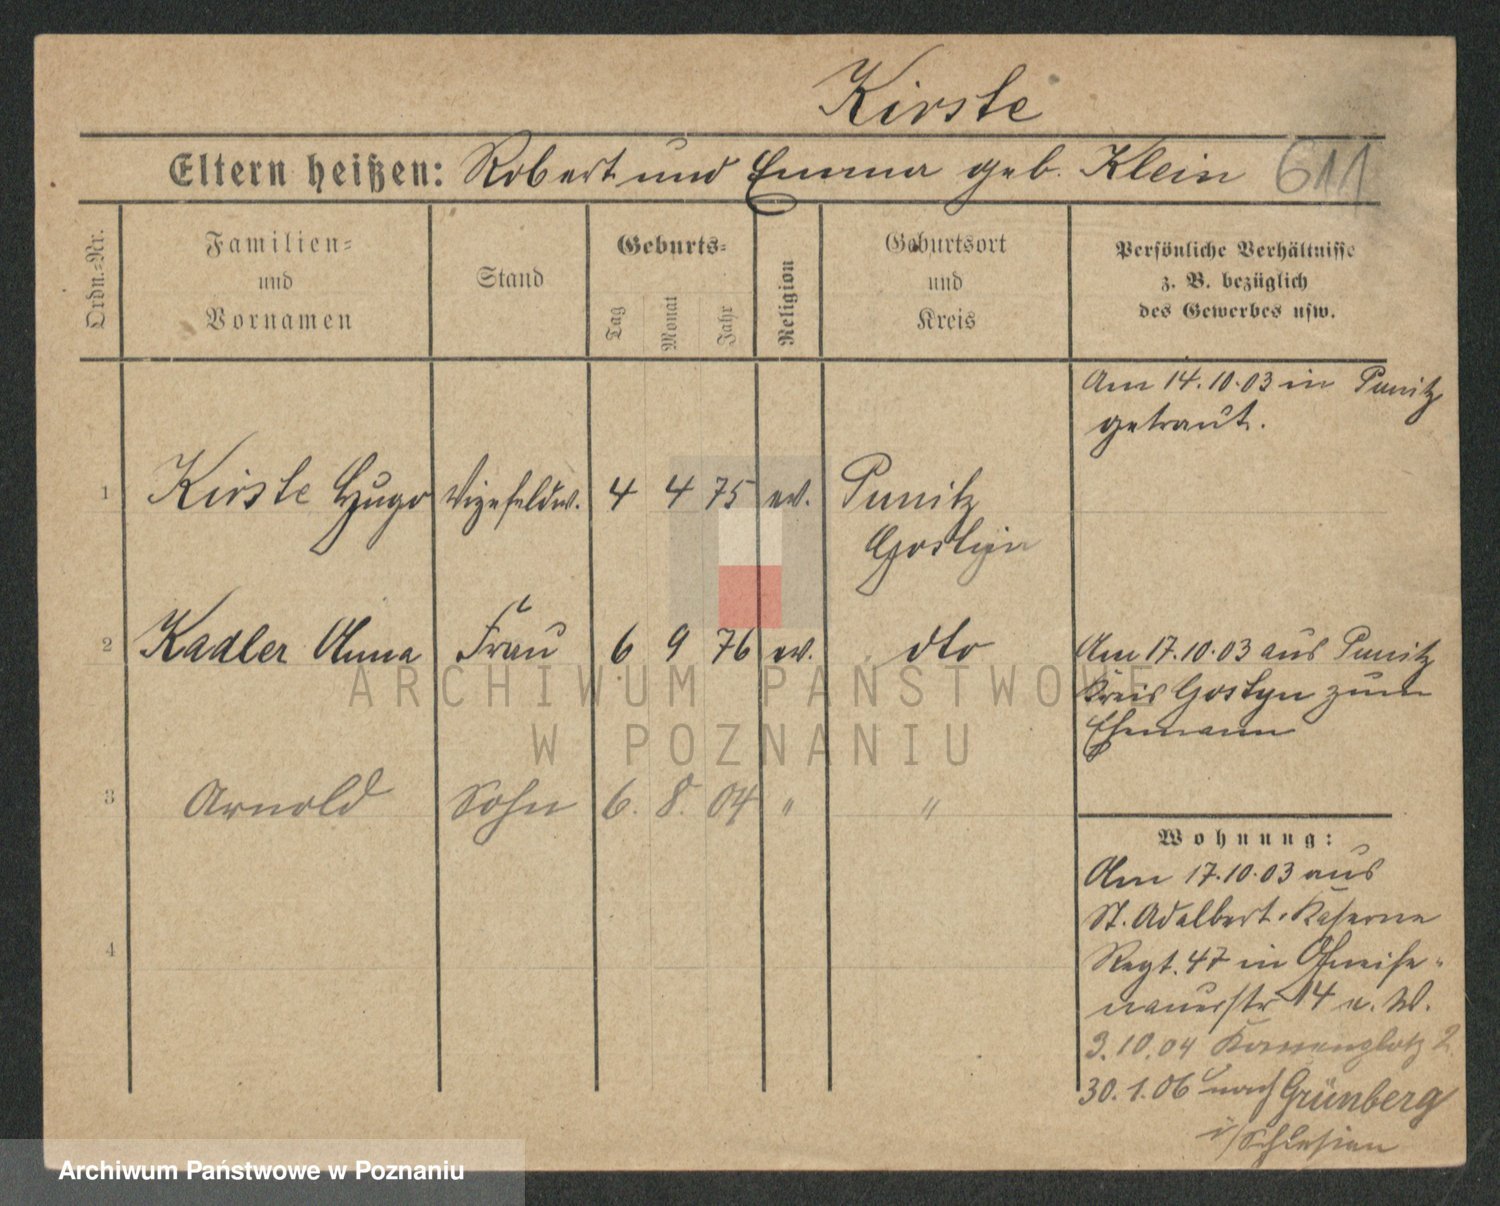 Kirste
Eltern heißen: Robert und Emma geb. Klein 611
Ordn.=Nr.
Familien=
und
Vornamen
Stand
Geburts=
Tag
Monat
Jahr
Religion
Geburtsort
und
Kreis
Persönliche Verhältnisse
z. B. bezüglich
des Gewerbes usw.
Am 14.10.03 in Punitz
getraut.
1 Kirste Hugo Vizefeldw. 4 4 75 ev. Punitz
Gostyn
2 Kadler Anna Frau 6 9 76 ev. dto
Am 17.10.03 aus Punitz
Kreis Gostyn zum
Ehemann
3 Arnold Sohn 6. 8. 04 " "
4
Wohnung:
Am 17.10.03 aus
St. Adalbert-Kaserne
Regt. 47 in Gneise-
nauerstr 14 a. W.
3.10.04 2
30.1.06 nach Grünberg
i/Schlesien
ARCHIWUM PAŃSTWOWE
W POZNANIU
Archiwum Państwowe w Poznaniu